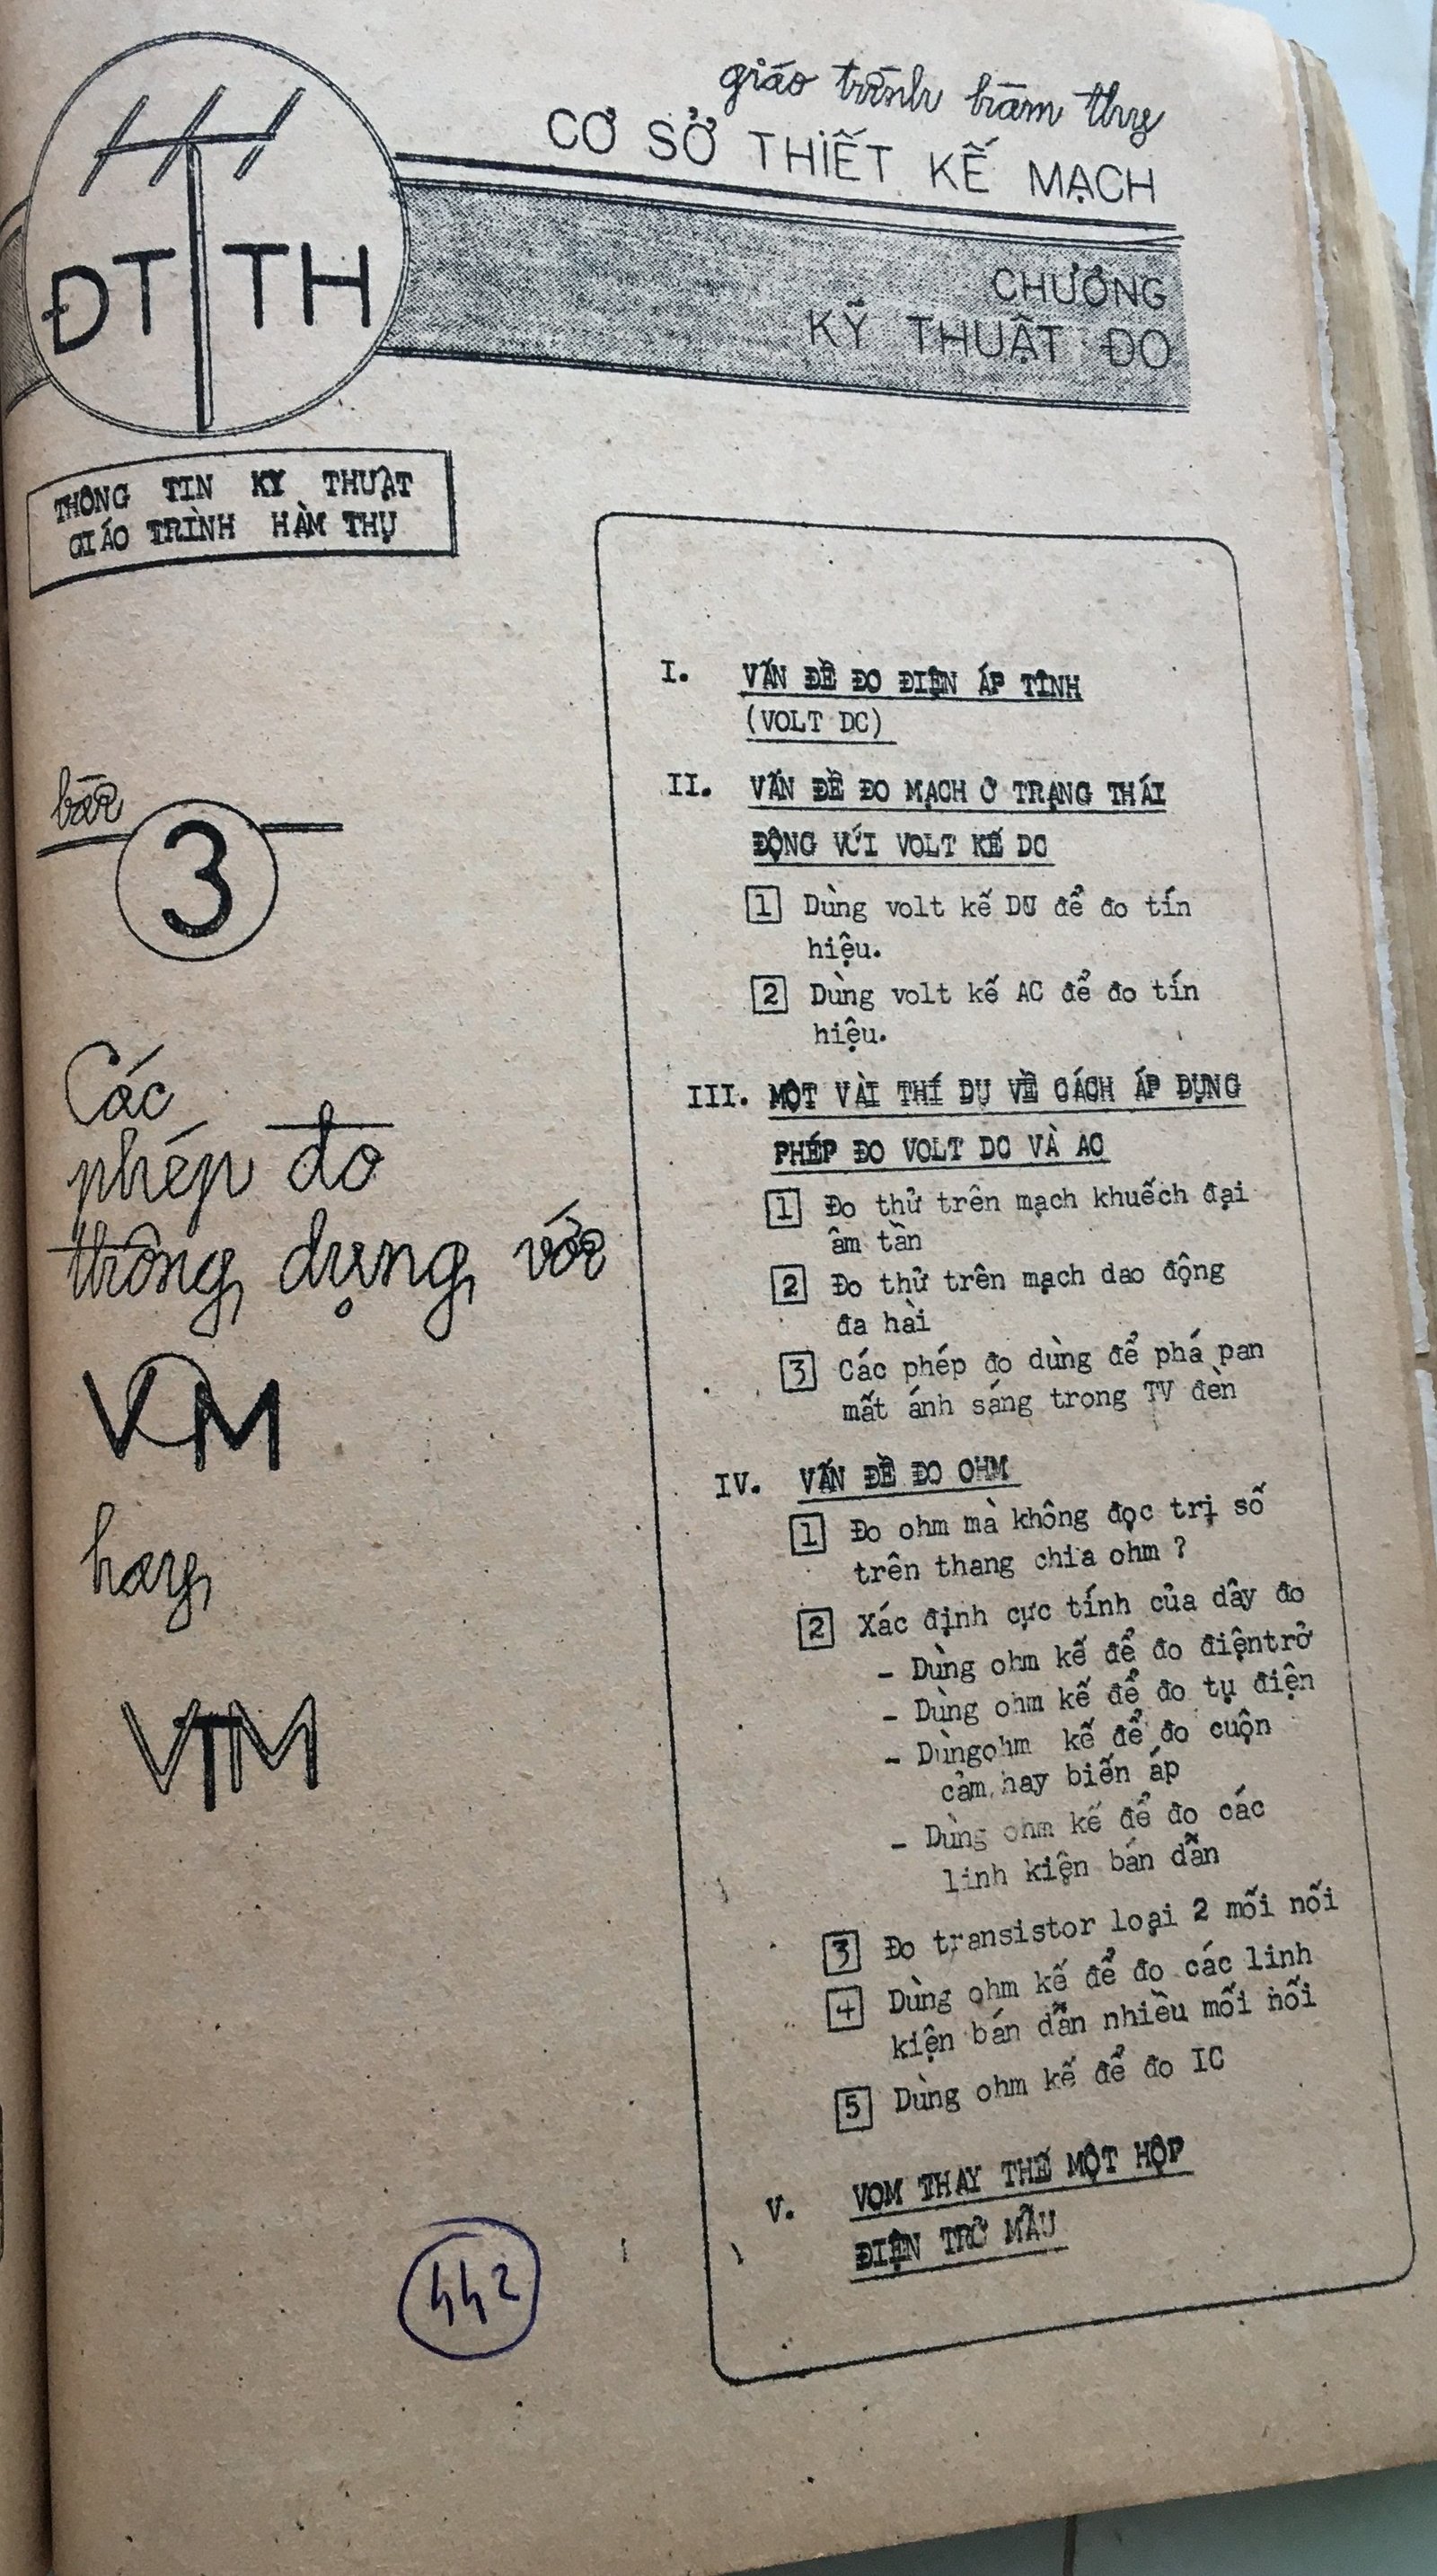 giáo trình hàm thụ
CƠ SỞ THIẾT KẾ MẠCH
ĐT TH
CHƯƠNG
KỸ THUẬT ĐO
THÔNG TIN KỸ THUẬT
GIÁO TRÌNH HÀM THỤ
bài
3
Các
phép đo
thông dụng với
VOM
hay
VTM
I. VẤN ĐỀ ĐO ĐIỆN ÁP TĨNH
(VOLT DC)
II. VẤN ĐỀ ĐO MẠCH Ở TRẠNG THÁI
ĐỘNG VỚI VOLT KẾ DC
1 Dùng volt kế DC để đo tín
hiệu.
2 Dùng volt kế AC để đo tín
hiệu.
III. MỘT VÀI THÍ DỤ VỀ CÁCH ÁP DỤNG
PHÉP ĐO VOLT DC VÀ AC
1 Đo thử trên mạch khuếch đại
âm tần
2 Đo thử trên mạch dao động
đa hài
3 Các phép đo dùng để phá pan
mất ánh sáng trong TV đèn
IV. VẤN ĐỀ ĐO OHM
1 Đo ohm mà không đọc trị số
trên thang chia ohm ?
2 Xác định cực tính của dây đo
- Dùng ohm kế để đo điệntrở
- Dùng ohm kế để đo tụ điện
- Dùngohm kế để đo cuộn
cảm hay biến áp
- Dùng ohm kế để đo các
linh kiện bán dẫn
3 Đo transistor loại 2 mối nối
4 Dùng ohm kế để đo các linh
kiện bán dẫn nhiều mối nối
5 Dùng ohm kế để đo IC
V. VOM THAY THẾ MỘT HỘP
ĐIỆN TRỞ MẪU
442